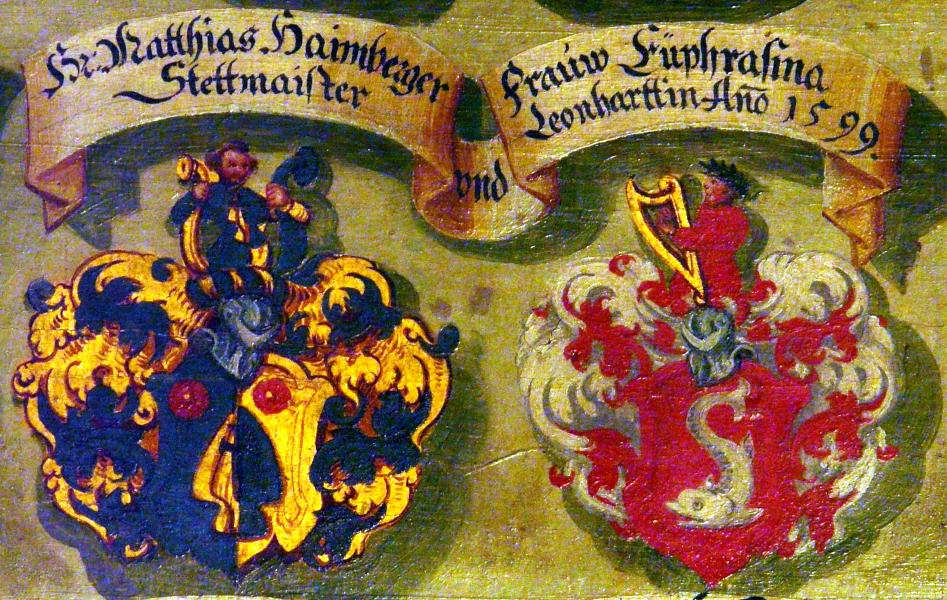 Hr. Matthias Haimberger
Stettmaister
vnd
Frauw Euphrasina
Leonharttin Año 1599.